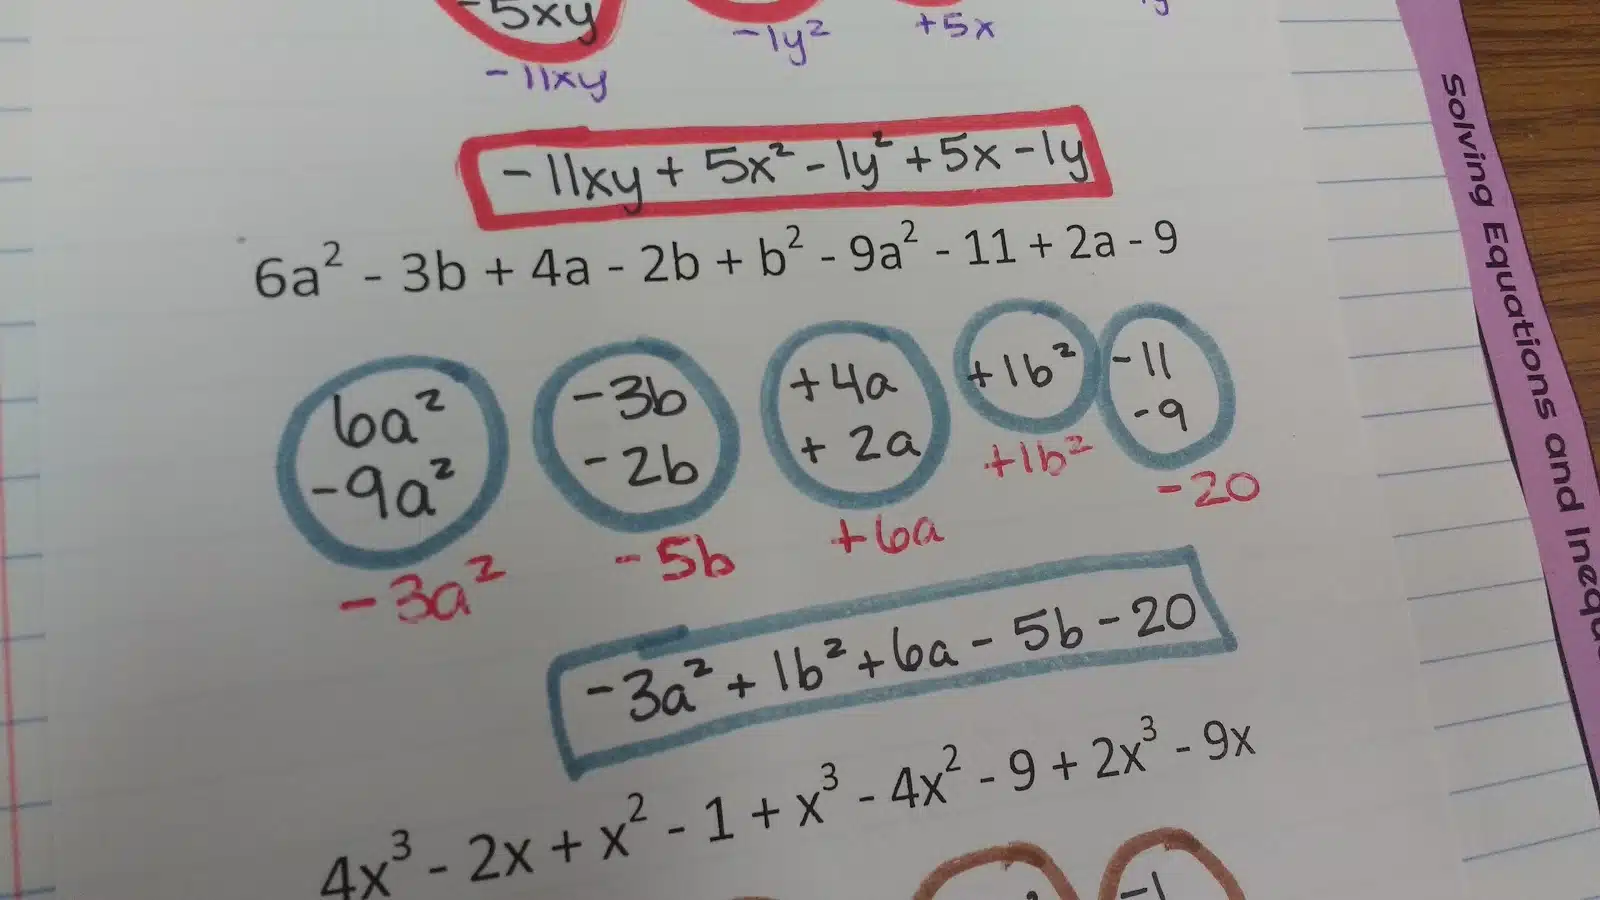 -5xy
-1y²
+5x
-11xy
-11xy + 5x² - 1y² + 5x - 1y
6a² - 3b + 4a - 2b + b² - 9a² - 11 + 2a - 9
6a²
-9a²
-3a²
-3b
-2b
-5b
+4a
+ 2a
+6a
+1b²
+1b²
-11
-9
-20
-3a² + 1b² + 6a - 5b - 20
4x³ - 2x + x² - 1 + x³ - 4x² - 9 + 2x³ - 9x
-1
Solving Equations and